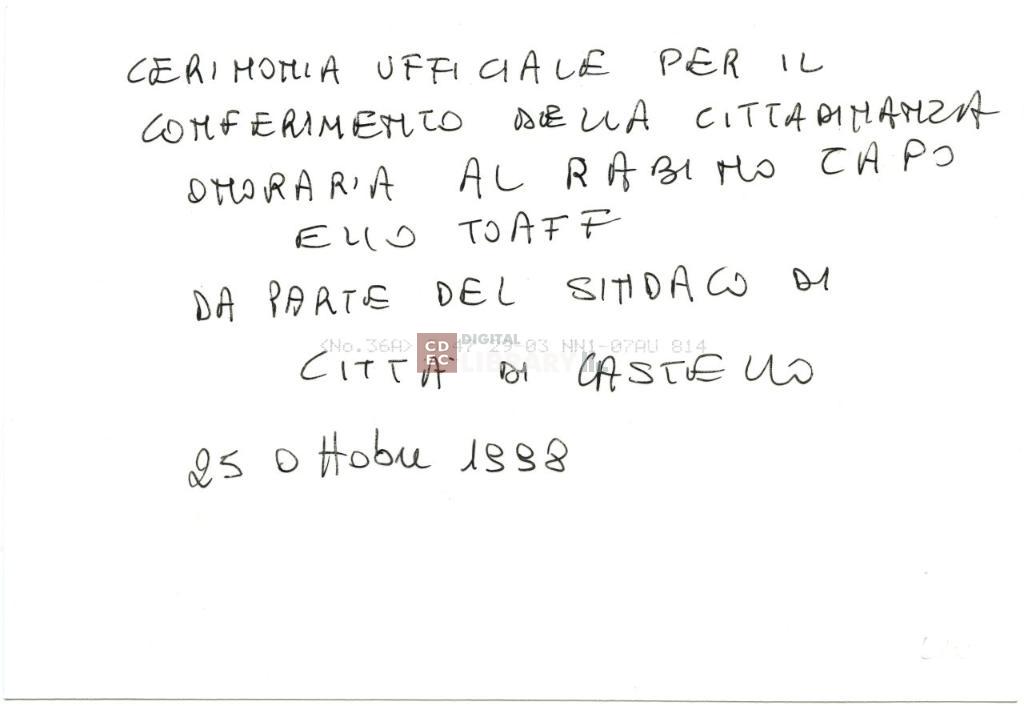 CERIMONIA UFFICIALE PER IL
CONFERIMENTO DELLA CITTADINANZA
ONORARIA AL RABINO CAPO
ELIO TOAFF
DA PARTE DEL SINDACO DI
<No.36A> 47 29-03 NN1-07AU 814
CDEC DIGITAL LIBRARY
CITTÀ DI CASTELLO
25 Ottobre 1998